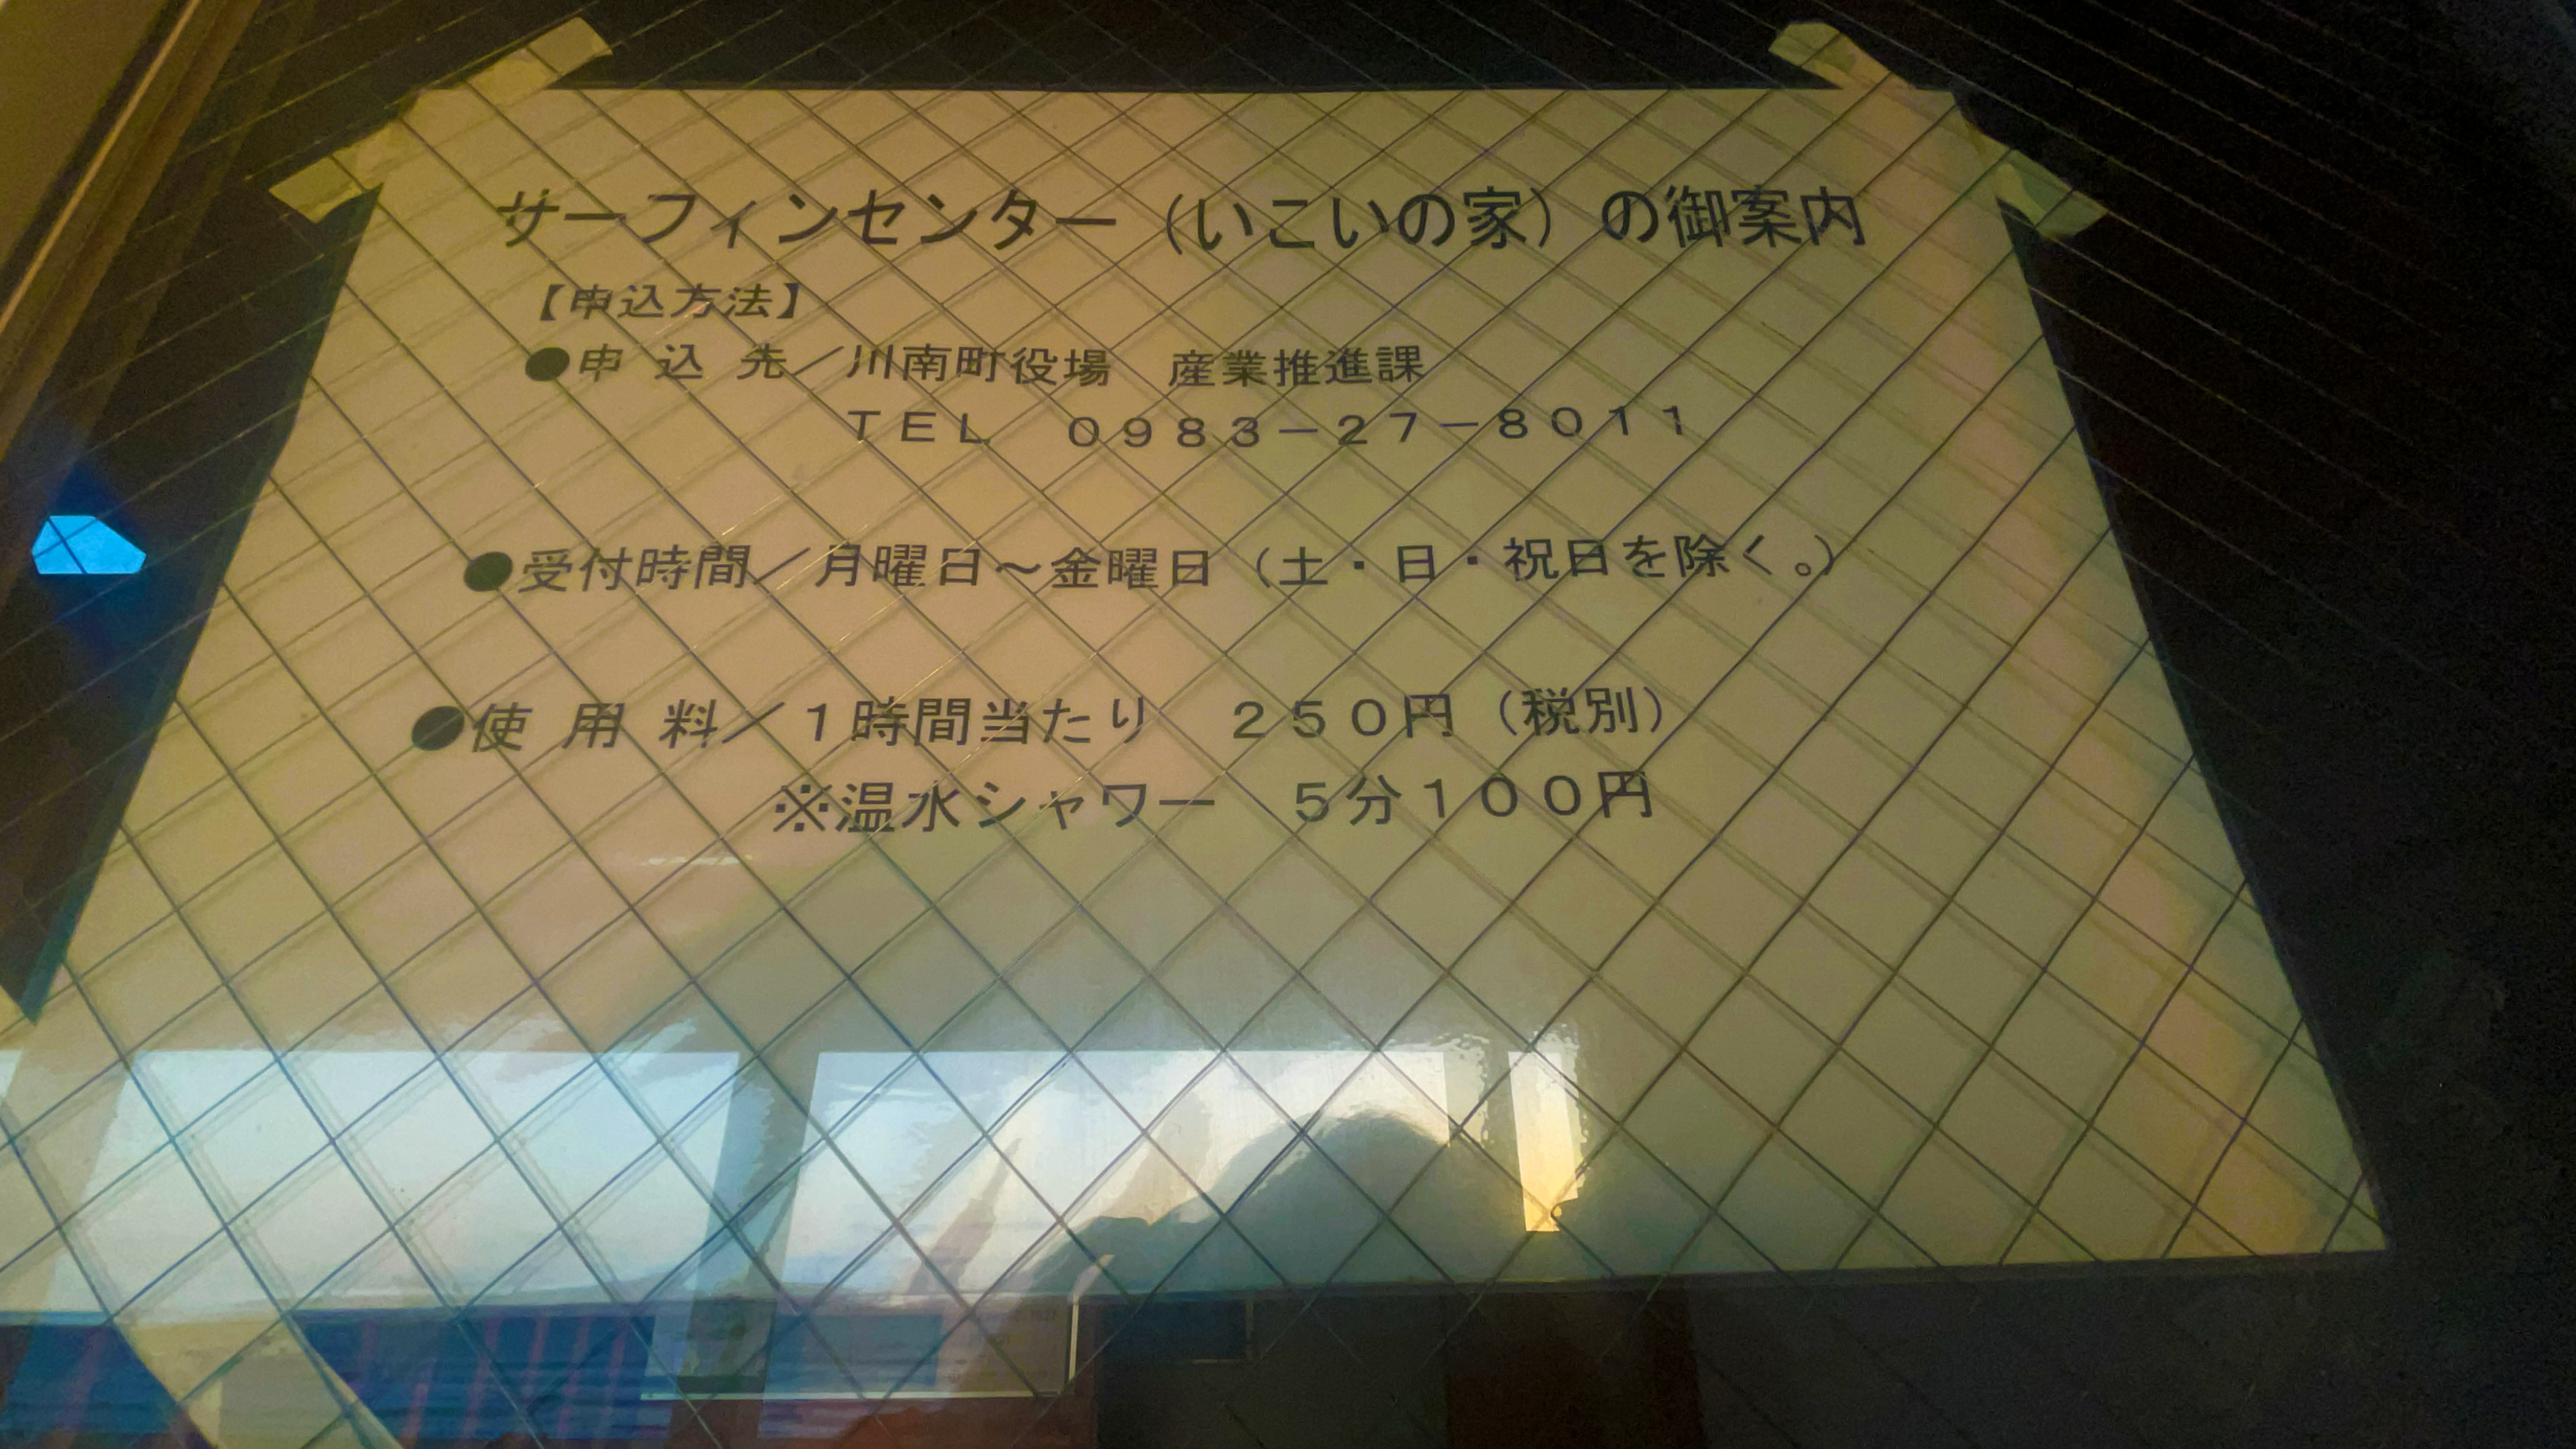 サーフィンセンター（いこいの家）の御案内
【申込方法】
●申 込 先／川南町役場　産業推進課
ＴＥＬ　０９８３－２７－８０１１
●受付時間／月曜日～金曜日（土・日・祝日を除く。）
●使 用 料／１時間当たり　２５０円（税別）
※温水シャワー　５分１００円